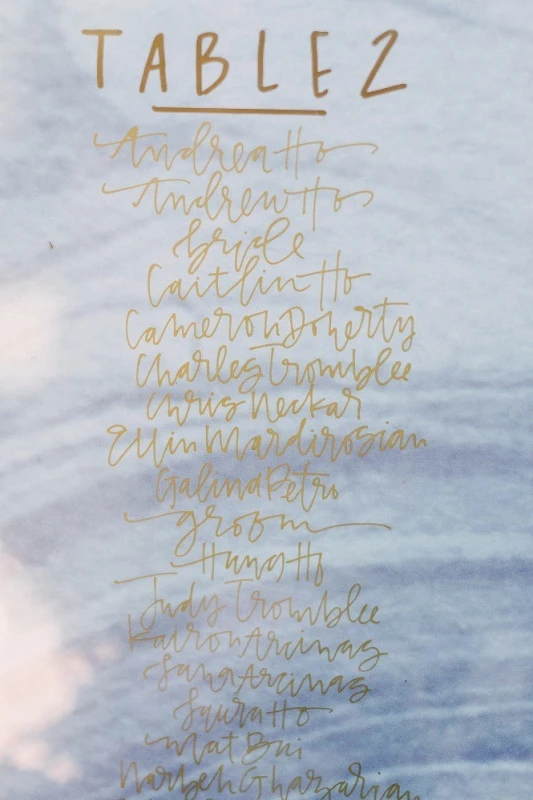 TABLE 2
Andrea Ho
Andrew Ho
bride
Caitlin Ho
Cameron Doherty
Charles Tromblee
Chris Neckar
Ellin Mardirosian
Galina Petro
groom
Hung Ho
Judy Tromblee
Kairon Arcinas
Arcinas
Laura Ho
Mat Bui
Narbeh Ghazarian